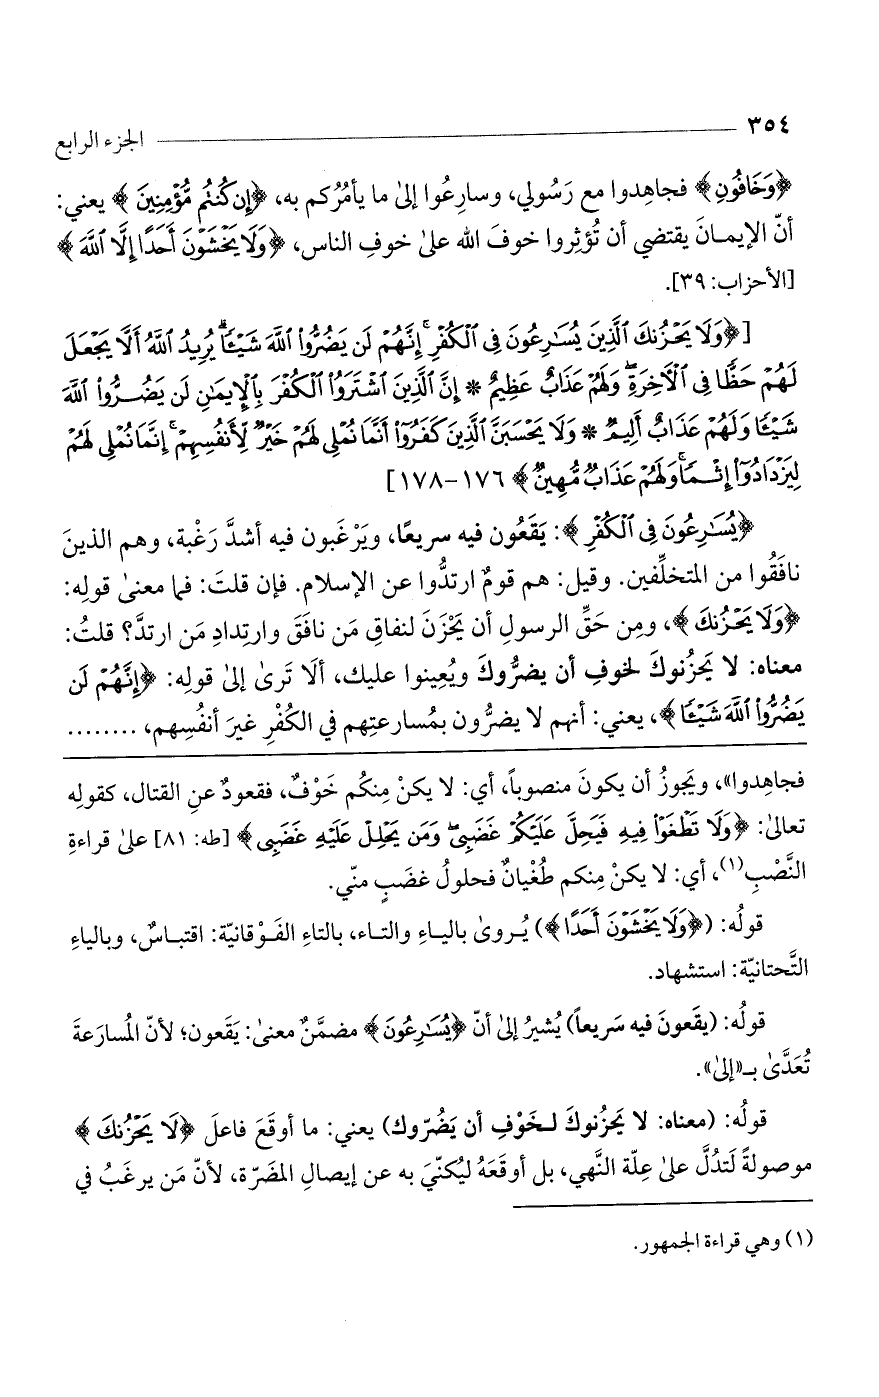 ٣٥٤ الجزء الرابع
﴿وَخَافُونِ﴾ فجاهِدوا مع رَسُولي، وسارِعُوا إلىٰ ما يأمُرُكم به، ﴿إِن كُنتُم مُّؤْمِنِينَ﴾ يعني:
أنّ الإيمـانَ يقتضي أن تُؤثِروا خوفَ الله علىٰ خوفِ الناس، ﴿وَلَا يَخْشَوْنَ أَحَدًا إِلَّا ٱللَّهَ﴾
[الأحزاب: ٣٩].
[﴿وَلَا يَحْزُنكَ ٱلَّذِينَ يُسَـٰرِعُونَ فِى ٱلْكُفْرِ ۚ إِنَّهُمْ لَن يَضُرُّوا۟ ٱللَّهَ شَيْـًٔا ۗ يُرِيدُ ٱللَّهُ أَلَّا يَجْعَلَ
لَهُمْ حَظًّا فِى ٱلْـَٔاخِرَةِ ۖ وَلَهُمْ عَذَابٌ عَظِيمٌ * إِنَّ ٱلَّذِينَ ٱشْتَرَوُا۟ ٱلْكُفْرَ بِٱلْإِيمَـٰنِ لَن يَضُـرُّوا۟ ٱللَّهَ
شَيْـًٔا وَلَهُمْ عَذَابٌ أَلِيمٌ * وَلَا يَحْسَبَنَّ ٱلَّذِينَ كَفَرُوٓا۟ أَنَّمَا نُمْلِى لَهُمْ خَيْرٌ لِّأَنفُسِهِمْ ۚ إِنَّمَا نُمْلِى لَهُمْ
لِيَزْدَادُوٓا۟ إِثْـمًا ۚ وَلَهُمْ عَذَابٌ مُّهِينٌ﴾ ١٧٦-١٧٨]
﴿يُسَـٰرِعُونَ فِى ٱلْكُفْرِ﴾: يَقَعُون فيه سريعًا، ويَرْغَبون فيه أشدَّ رَغْبة، وهم الذينَ
نافَقُوا من المتخلِّفين. وقيل: هم قومٌ ارتدُّوا عن الإسلام. فإن قلتَ: فما معنىٰ قولِه:
﴿وَلَا يَحْزُنكَ﴾، ومِن حَقِّ الرسولِ أن يَحْزَنَ لنفاقِ مَن نافَقَ وارتِدادِ مَن ارتدَّ؟ قلتُ:
معناه: لا يَحزُنوكَ لخوفِ أن يضرُّوكَ ويُعِينوا عليك، ألَا تَرىٰ إلىٰ قولِه: ﴿إِنَّهُمْ لَن
يَضُرُّوا۟ ٱللَّهَ شَيْـًٔا﴾، يعني: أنهم لا يضرُّون بمُسارعتِهم في الكُفْرِ غيرَ أنفُسِهم، ........
فجاهِدوا»، ويَجوزُ أن يكونَ منصوباً، أي: لا يكنْ مِنكُم خَوْفٌ، فقعودٌ عنِ القتال، كقولِه
تعالىٰ: ﴿وَلَا تَطْغَوْا۟ فِيهِ فَيَحِلَّ عَلَيْكُمْ غَضَبِى ۖ وَمَن يَحْلِلْ عَلَيْهِ غَضَبِى﴾ [طه: ٨١] علىٰ قراءةِ
النَّصْبِ(١)، أي: لا يكنْ مِنكم طُغْيانٌ فحلولُ غضَبٍ منّي.
قولُه: (﴿وَلَا يَخْشَوْنَ أَحَدًا﴾) يُـروىٰ بالياءِ والتـاء، بالتاءِ الفَـوْقانيّة: اقتبـاسٌ، وبالياءِ
التَّحتانيّة: استشهاد.
قولُه: (يقَعونَ فيه سَريعاً) يُشيرُ إلىٰ أنّ ﴿يُسَـٰرِعُونَ﴾ مضمَّنٌ معنىٰ: يَقَعون؛ لأنّ المُسارَعةَ
تُعَدَّىٰ بـ«إلىٰ».
قولُه: (معناه: لا يَحزُنوكَ لـخَوْفِ أن يَضُرّوك) يعني: ما أوقَعَ فاعلَ ﴿لَا يَحْزُنكَ﴾
موصولةً لَتدُلَّ علىٰ عِلّة النَّهي، بل أوقَعَهُ ليُكنّيَ به عن إيصالِ المضَرّة، لأنّ مَن يرغَبُ في
(١) وهي قراءة الجمهور.